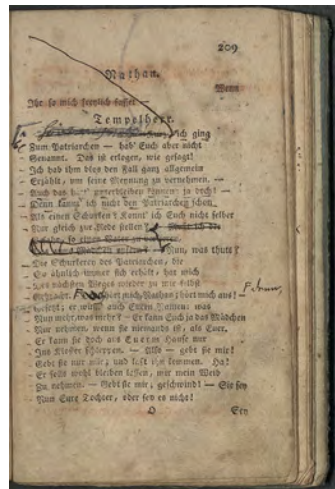 209
Nathan.
Wenn
Ihr so mich herzlich fasset —
Tempelherr.
ich ging
Zum Patriarchen — hab' Euch aber nicht
Genannt. Das ist erlogen, wie gesagt!
Ich hab ihm blos den Fall ganz allgemein
Erzählt, um seine Meynung zu vernehmen. —
Auch das hätt' unterbleiben können: ja doch! —
Denn kannt' ich nicht den Patriarchen schon
Als einen Schurken? Konnt' ich Euch nicht selber
Nur gleich zur Rede stellen?
Nun, was thuts?
Die Schurkerey des Patriarchen, die
So ähnlich immer sich erhält, hat mich
Des nächsten Weges wieder zu mir selbst
Gebracht. Denn hört mich, Nathan; hört mich aus! —
Gesetzt; er wißt' auch Euren Namen: was
Nun mehr, was mehr? — Er kann Euch ja das Mädchen
Nur nehmen, wenn sie niemands ist, als Euer.
Er kann sie doch aus Euerm Hause nur
Ins Kloster schleppen. — Also — gebt sie mir!
Gebt sie nur mir; und laßt ihn kommen. Ha!
Er solls wohl bleiben lassen, mir mein Weib
Zu nehmen. — Gebt sie mir; geschwind! — Sie sey
Nun Eure Tochter, oder sey es nicht!
O
Sey